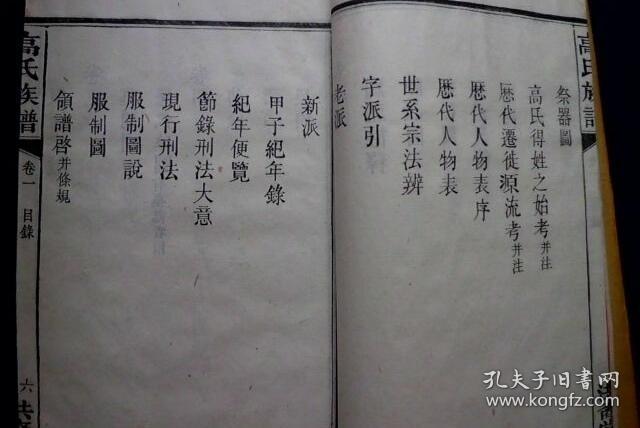 高氏族譜
祭器圖
高氏得姓之始考并注
歷代遷徙源流考并注
歷代人物表序
歷代人物表
世系宗法辨
字派引
老派
新派
甲子紀年錄
紀年便覽
節錄刑法大意
現行刑法
服制圖說
服制圖
領譜啓并條規
高氏族譜 卷一 目錄 六
孔夫子旧书网
www.kongfz.com